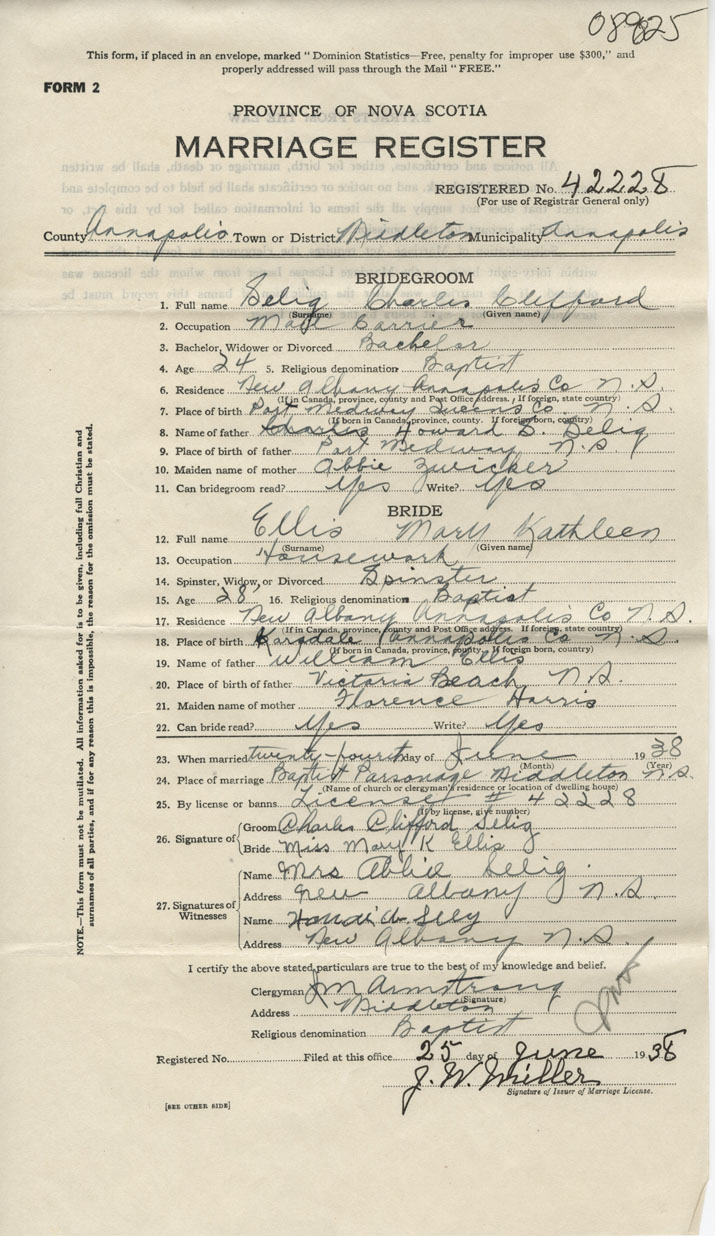 089825
This form, if placed in an envelope, marked "Dominion Statistics—Free, penalty for improper use $300," and
properly addressed will pass through the Mail "FREE."
FORM 2
PROVINCE OF NOVA SCOTIA
MARRIAGE REGISTER
REGISTERED No. 42228
(For use of Registrar General only)
County Annapolis Town or District Middleton Municipality Annapolis
BRIDEGROOM
1. Full name Selig Charles Clifford
(Surname) (Given name)
2. Occupation Mail Carrier
3. Bachelor, Widower or Divorced Bachelor
4. Age 24 5. Religious denomination Baptist
6. Residence New Albany Annapolis Co N.S.
(If in Canada, province, county and Post Office address. If foreign, state country)
7. Place of birth Port Medway Queens Co. N.S.
(If born in Canada, province, county. If foreign born, country)
8. Name of father Charles Howard D. Selig
9. Place of birth of father Port Medway N.S.
10. Maiden name of mother Abbie Zwicker
11. Can bridegroom read? Yes Write? Yes
BRIDE
12. Full name Ellis Mary Kathleen
(Surname) (Given name)
13. Occupation Housework
14. Spinster, Widow, or Divorced Spinster
15. Age 28 16. Religious denomination Baptist
17. Residence New Albany Annapolis Co N.S.
(If in Canada, province, county and Post Office address. If foreign, state country)
18. Place of birth Karsdale Annapolis Co N.S.
(If born in Canada, province, county. If foreign born, country)
19. Name of father William Ellis
20. Place of birth of father Victoria Beach N.S.
21. Maiden name of mother Florence Harris
22. Can bride read? Yes Write? Yes
23. When married twenty-fourth day of June 1938
(Month) (Year)
24. Place of marriage Baptist Parsonage Middleton N.S.
(Name of church or clergyman's residence or location of dwelling house)
25. By license or banns License # 42228
(If by license, give number)
26. Signature of Groom Charles Clifford Selig
Bride Miss Mary K Ellis
27. Signatures of Witnesses
Name Mrs Abbie Selig
Address New Albany N.S.
Name
Address New Albany N.S.
I certify the above stated particulars are true to the best of my knowledge and belief.
Clergyman Armstrong
(Signature)
Address Middleton
Religious denomination Baptist
Registered No. Filed at this office 25 day of June 1938
J. W. Miller
Signature of Issuer of Marriage License.
[SEE OTHER SIDE]
NOTE.—This form must not be mutilated. All information asked for is to be given, including full Christian and
surnames of all parties, and if for any reason this is impossible, the reason for the omission must be stated.